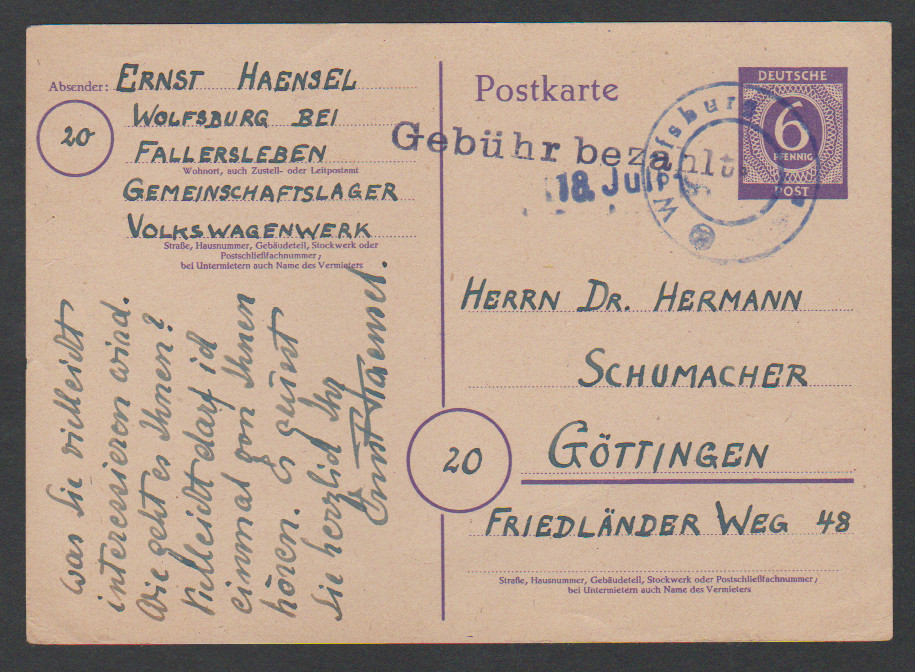 Absender: ERNST HAENSEL
20
WOLFSBURG BEI
FALLERSLEBEN
Wohnort, auch Zustell- oder Leitpostamt
GEMEINSCHAFTSLAGER
VOLKSWAGENWERK
Straße, Hausnummer, Gebäudeteil, Stockwerk oder
Postschließfachnummer;
bei Untermietern auch Name des Vermieters
was Sie vielleicht
interessieren wird.
Wie geht es Ihnen?
Vielleicht darf ich
einmal von Ihnen
hören. Es grüßt
Sie herzlich Ihr
Ernst Haensel.
Postkarte
DEUTSCHE
6
PFENNIG
POST
Gebühr bezahlt
18. Juli
Wolfsburg
HERRN DR. HERMANN
SCHUMACHER
20
GÖTTINGEN
FRIEDLÄNDER WEG 48
Straße, Hausnummer, Gebäudeteil, Stockwerk oder Postschließfachnummer;
bei Untermietern auch Name des Vermieters